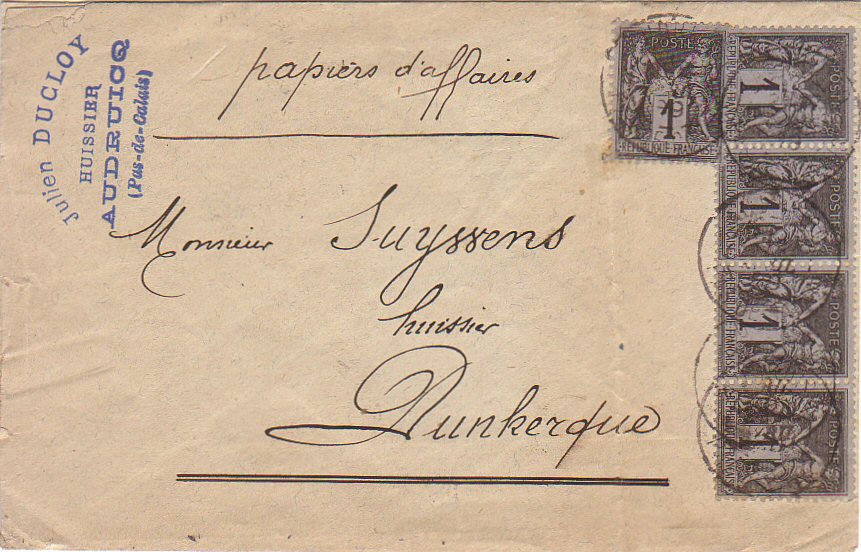 Julien DUCLOY
HUISSIER
AUDRUICQ
(Pas-de-Calais)
papiers d'affaires
Monsieur Suyssens
huissier
Dunkerque
POSTE
1
REPUBLIQUE FRANÇAISE
POSTE
1
REPUBLIQUE FRANÇAISE
POSTE
1
REPUBLIQUE FRANÇAISE
POSTE
1
REPUBLIQUE FRANÇAISE
POSTE
1
REPUBLIQUE FRANÇAISE